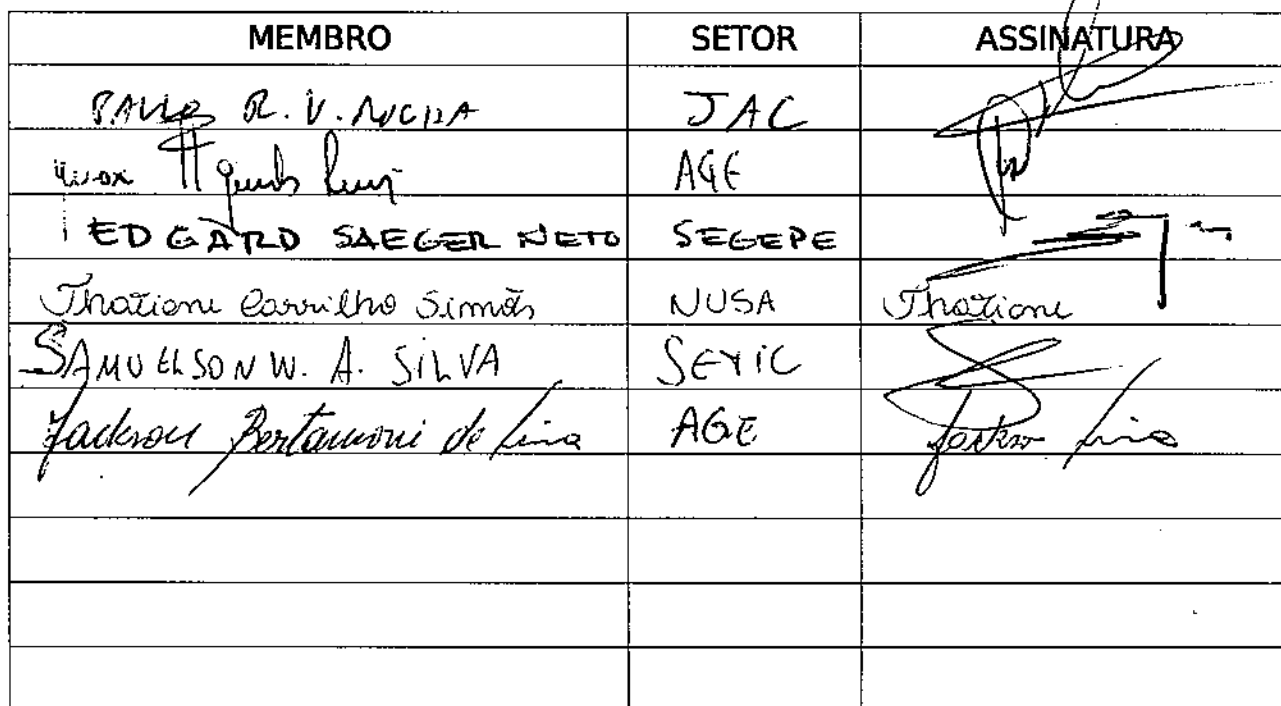 MEMBRO SETOR ASSINATURA
R. V. JAC
AGE
EDGARD SAEGER NETO SEGEPE
Thatiane Carrilho Simões NUSA Thatiane
SAMUELSON W. A. SILVA
Jackson Bertamoni de Lima AGE Lima